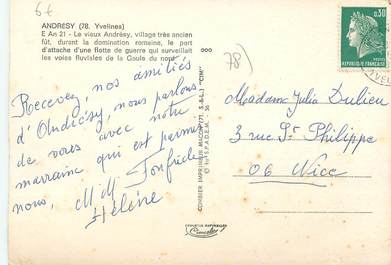 6€
ANDRESY (78. Yvelines)
E An 21 - Le vieux Andrésy, village très ancien
fût, durant la domination romaine, le port
d'attache d'une flotte de guerre qui surveillait
les voies fluviales de la Gaule du nord
78)
0,30
REPUBLIQUE FRANÇAISE
Recevez, nos amitiés
d'Andrésy, nous parlons
de vous avec notre
marraine qui est parmi
nous, M M Fonfriède
Hélène
Madame Julia Dulieu
3 rue St Philippe
06 Nice
COMBIER IMPRIMEUR MACON (71. S.&L.) "CIM"